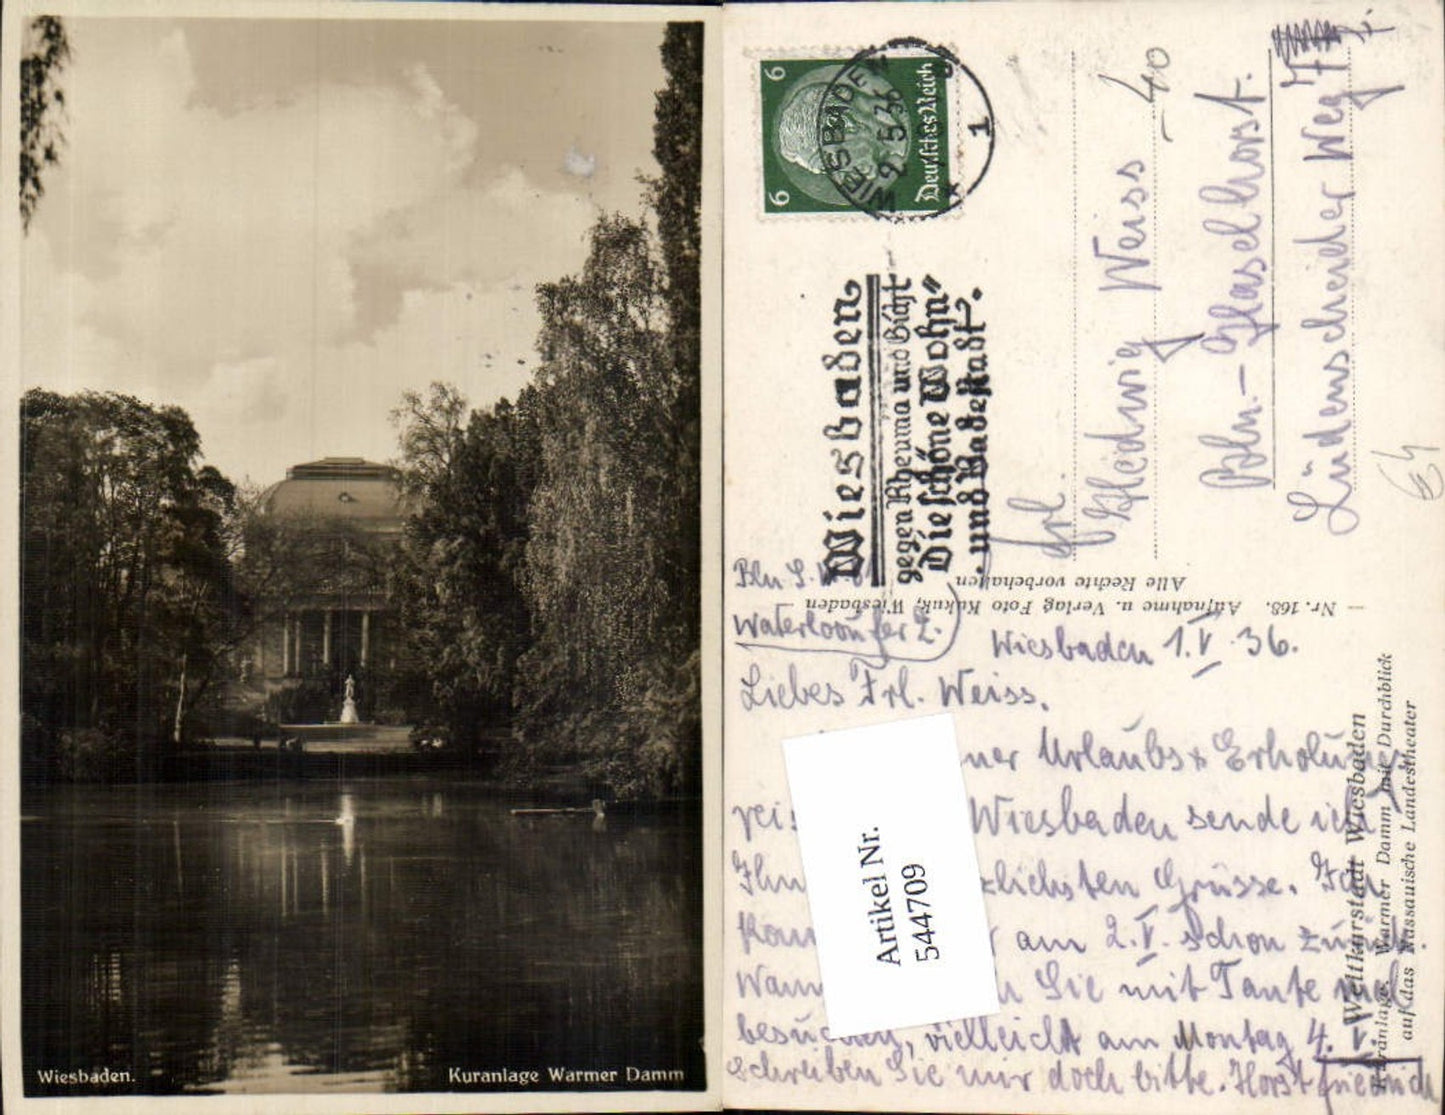 Wiesbaden.
Kuranlage Warmer Damm
6
6
Deutsches Reich
WIESBADEN
1
Wiesbaden
gegen Rheuma und Gicht
Die schöne Wohn=
und Badestadt.
Frl.
Hedwig Weiss
Bln.-Haselhorst.
Lüdenscheider Weg
40
64
Alle Rechte vorbehalten
— Nr. 168. Aufnahme u. Verlag Foto Kukuk, Wiesbaden —
Weltkurstadt Wiesbaden
Kuranlage, Warmer Damm mit Durchblick
auf das Nassauische Landestheater
Bln S.W. 61
Waterlooufer 2.
Wiesbaden 1.V.36.
Liebes Frl. Weiss.
Urlaubs & Erholungs
Wiesbaden sende ich
Grüsse. Ich
am 2.V. schon zurück.
Sie mit Tante mal
besuchen, vielleicht am Montag 4.V.
Schreiben Sie mir doch bitte. Horst Friedrich
Artikel Nr.
544709